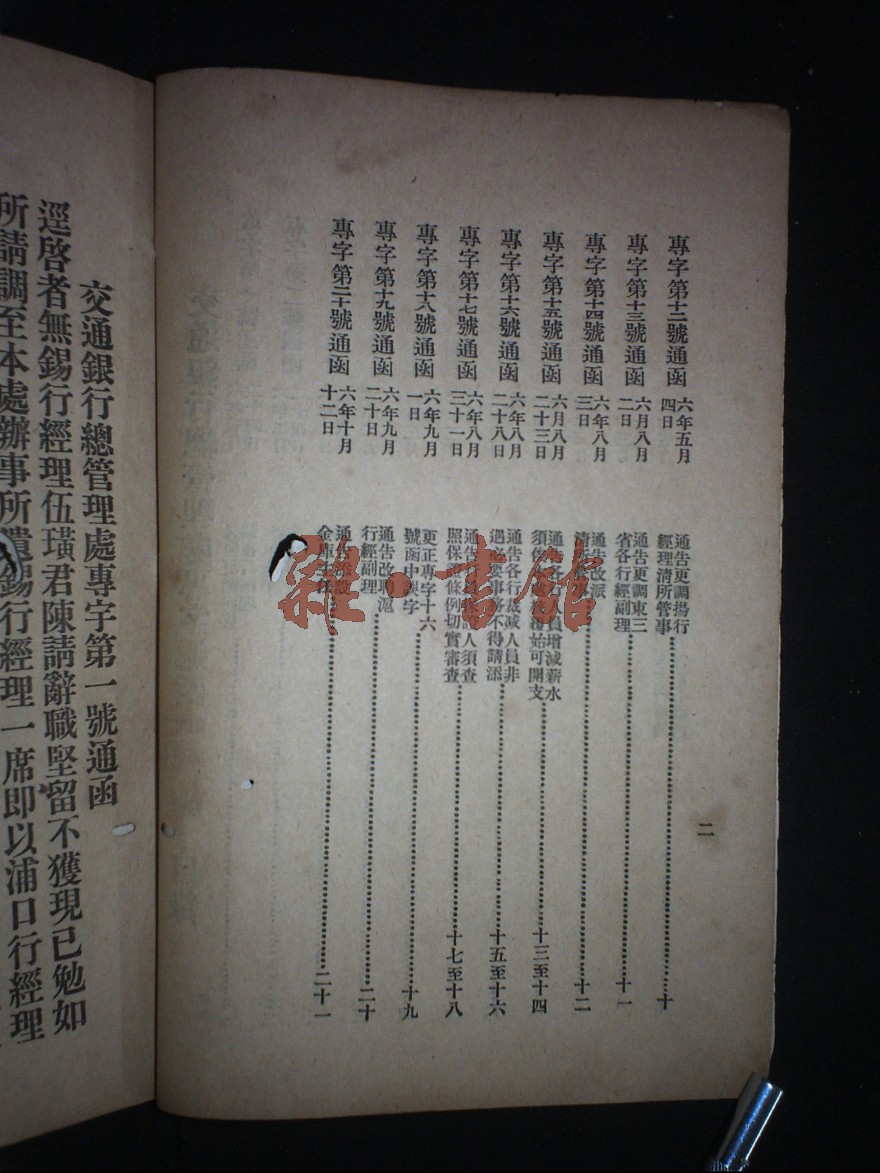 二
專字第十二號通函 六年五月四日 通告更調揚行經理清所管事 十
專字第十三號通函 六月八月二日 通告更調東三省各行經副理 十一
專字第十四號通函 六年八月三日 通告改派清所 十二
專字第十五號通函 六月八月二十三日 人員增減薪水須 始可開支 十三至十四
專字第十六號通函 六年八月二十八日 通告各行裁減人員非遇必要事務不得請添 十五至十六
專字第十七號通函 六年八月三十一日 通告 人須查照保 條例切實審查 十七至十八
專字第十八號通函 六年九月一日 更正專字十六號函中誤字 十九
專字第十九號通函 六年九月二十日 通告改 滬行經副理 二十
專字第二十號通函 六年十月十二日 通告 金庫 二十一
交通銀行總管理處專字第一號通函
逕啓者無錫行經理伍璜君陳請辭職堅留不獲現已勉如
所請調至本處辦事所遺錫行經理一席即以浦口行經理
雜·書館